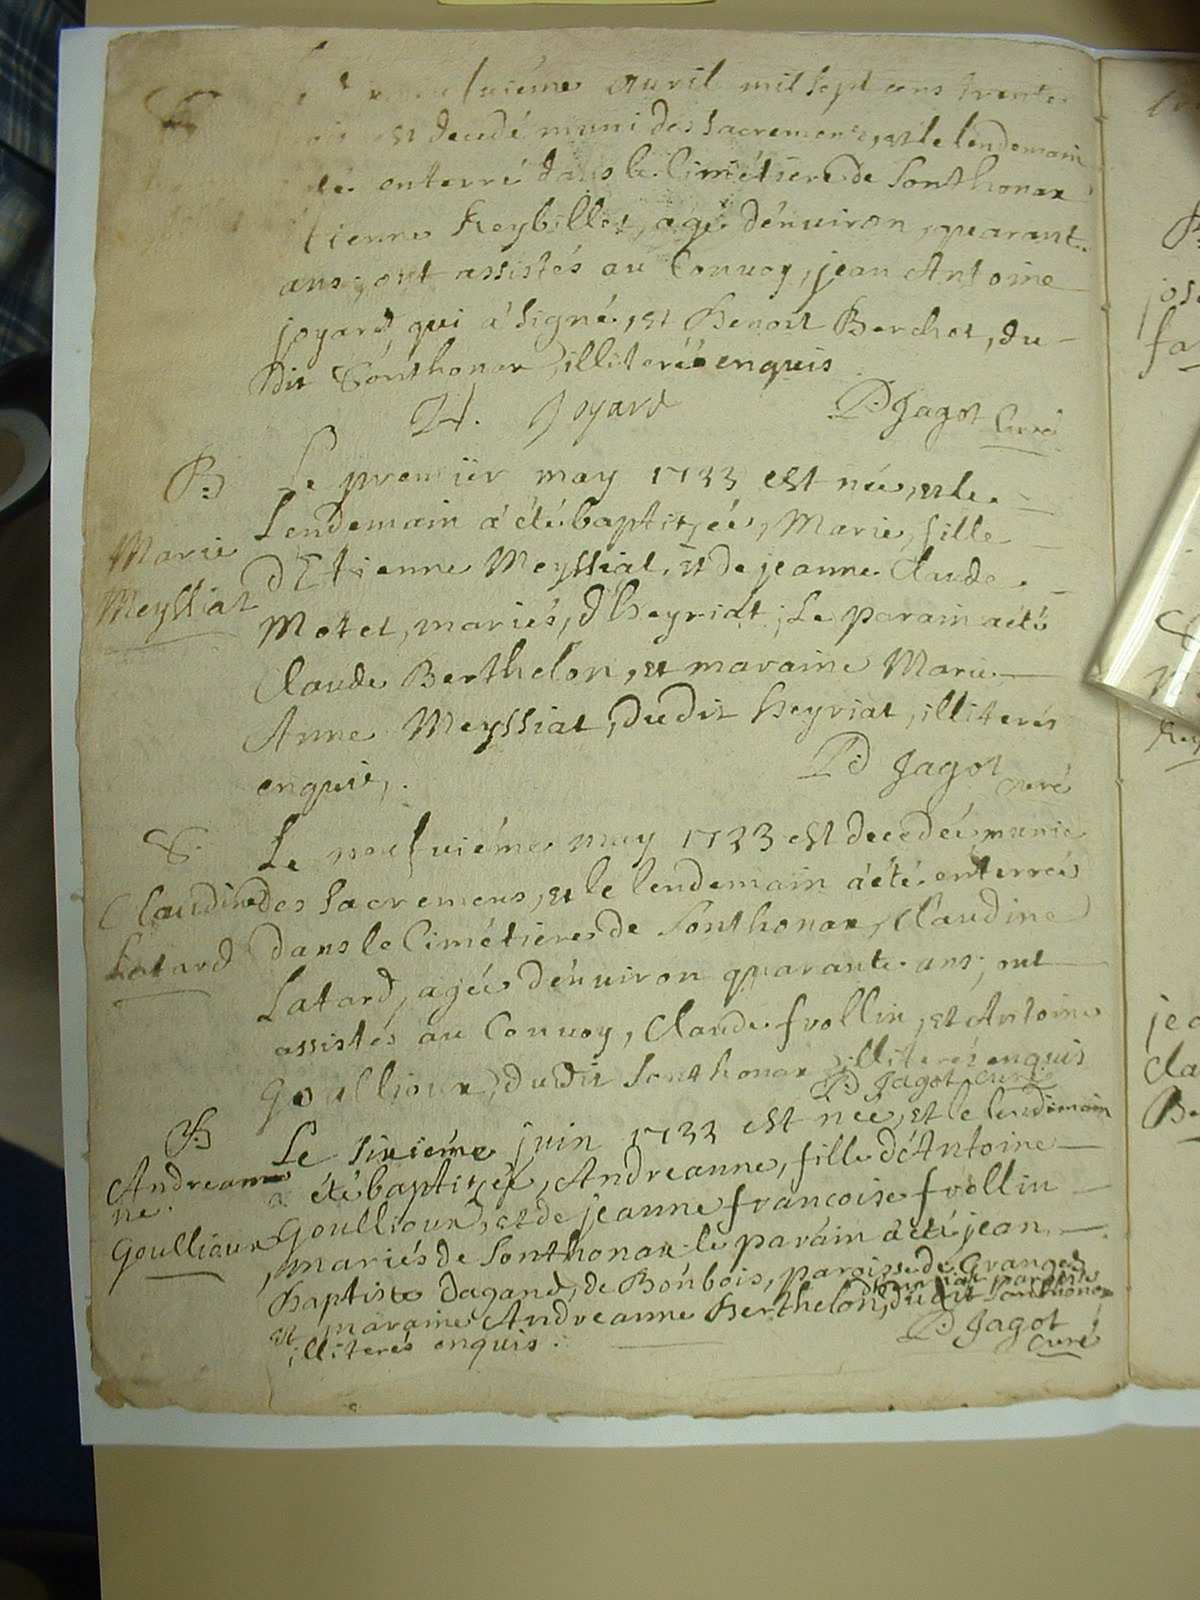 S
auril mil sept cens trente
est decedé muni des sacremens, et le lendemain
eté enterré dans le Cimétiere de Sonthonax
Etienne Reybillet, agé dénuiron, quarante
ans; ont assistés au Conuoy, jean Antoine
joyard, qui á signé, et Benoit Berchet, du-
dit Sonthonax, illiteré enquis
Joyard P.D Jagot Curé
B Le premiér may 1733 est née, et le
Marie Lendemain á été baptizée, Marie, fille
Meyssiat d'Etienne Meyssiat, et de jeanne Claude
Motet, mariés, d'heyriat; Le parain a été
Claude Berthelon, et maraine Marie
Anne Meyssiat, dudit heyriat, illiterés
enquis. P.D Jagot curé
S. Le neufuiéme may 1733 est decedée, munie
Claudine des sacremens, et le lendemain á été enterrée
Latard dans le Cimétiere de Sonthonax, Claudine
Latard, agée dénuiron quarante ans; ont
assistés au Conuoy, Claude frollin, et Antoine
Goullioux, dudit Sonthonax illiterés enquis
P.D Jagot curé
B Le sixiéme juin 1733 est née, et le lendemain
Andrean a été baptizée, Andreanne, fille d'Antoine
ne. Goullioux, et de jeanne francoise frollin
Goullioux mariés de Sonthonax le parain á été jean
Baptiste Dagand, de Bonbois, paroisse de Granges
et maraine Andreanne Berthelon, dudit Sonthonax
illiterés enquis. P.D Jagot
curé